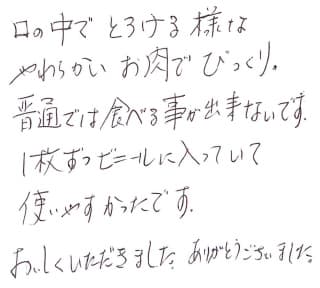 口の中で とろける 様な
やわらかい お肉で びっくり。
普通では食べる事が出来ないです。
1枚ずつビニールに入っていて
使いやすかったです。
おいしくいただきました。ありがとうございました。